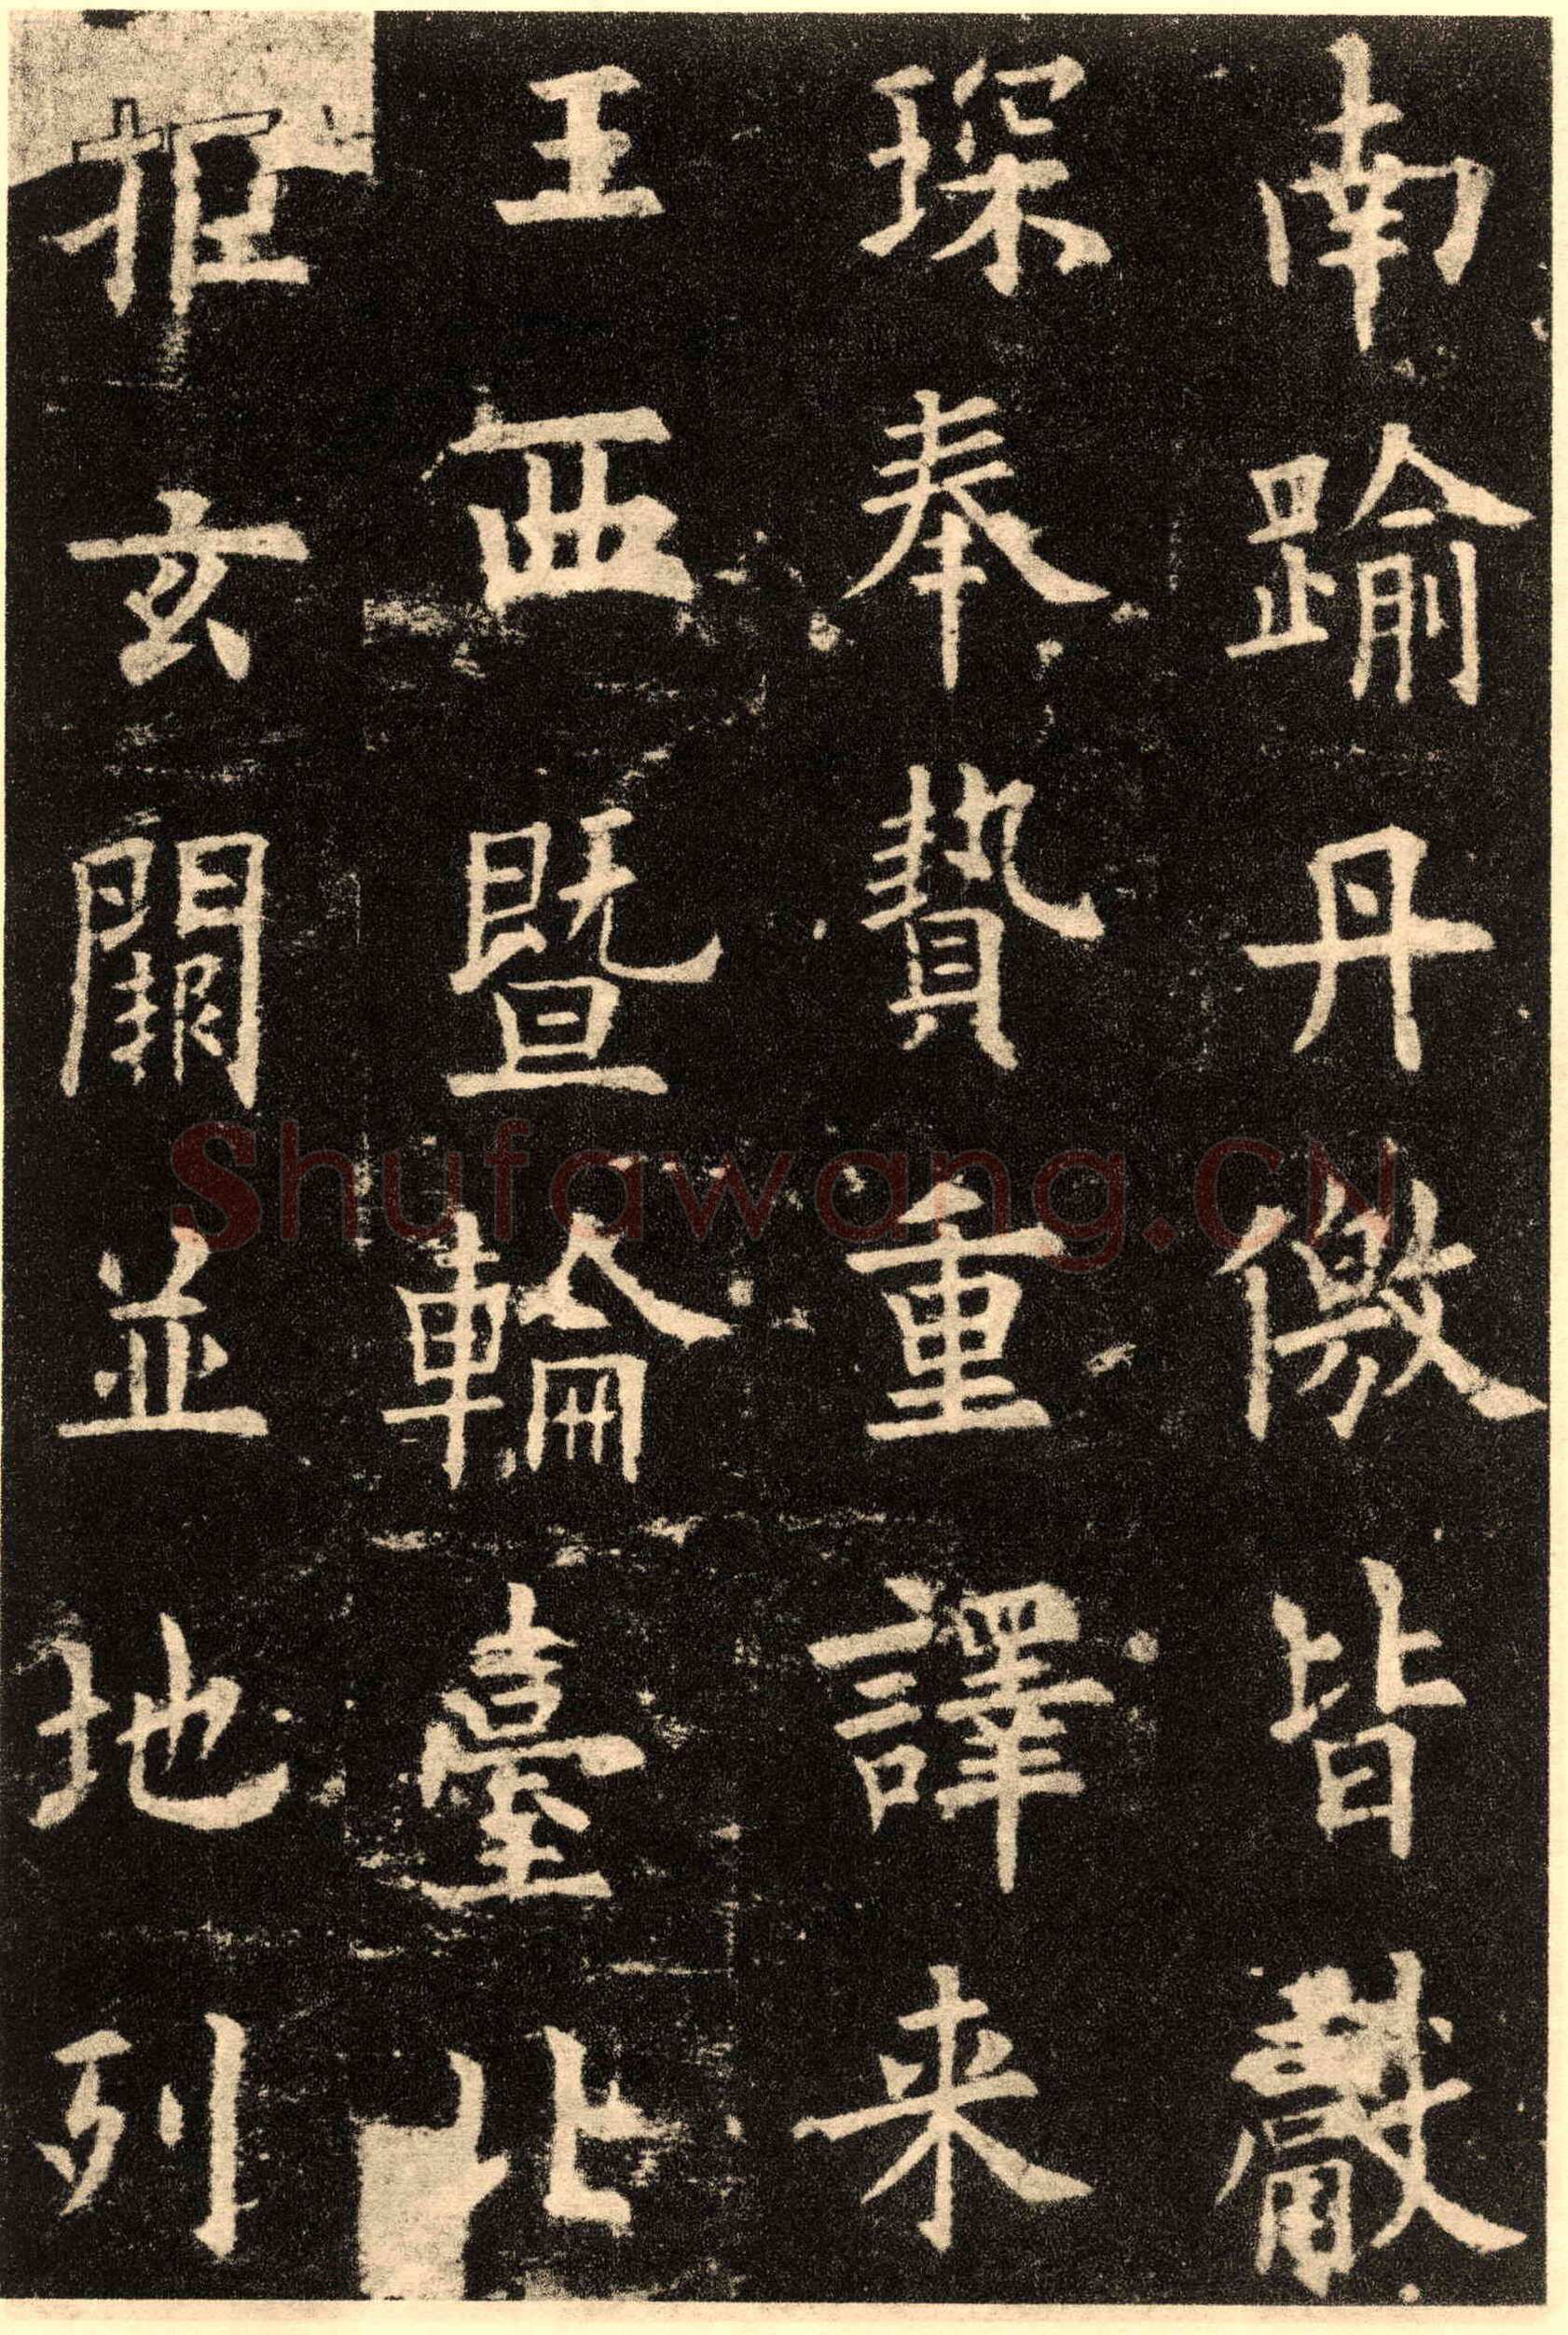 南踰丹徼皆獻
琛奉贄重譯来
王西暨輪臺北
拒玄闕並地列
Shufawang.CN